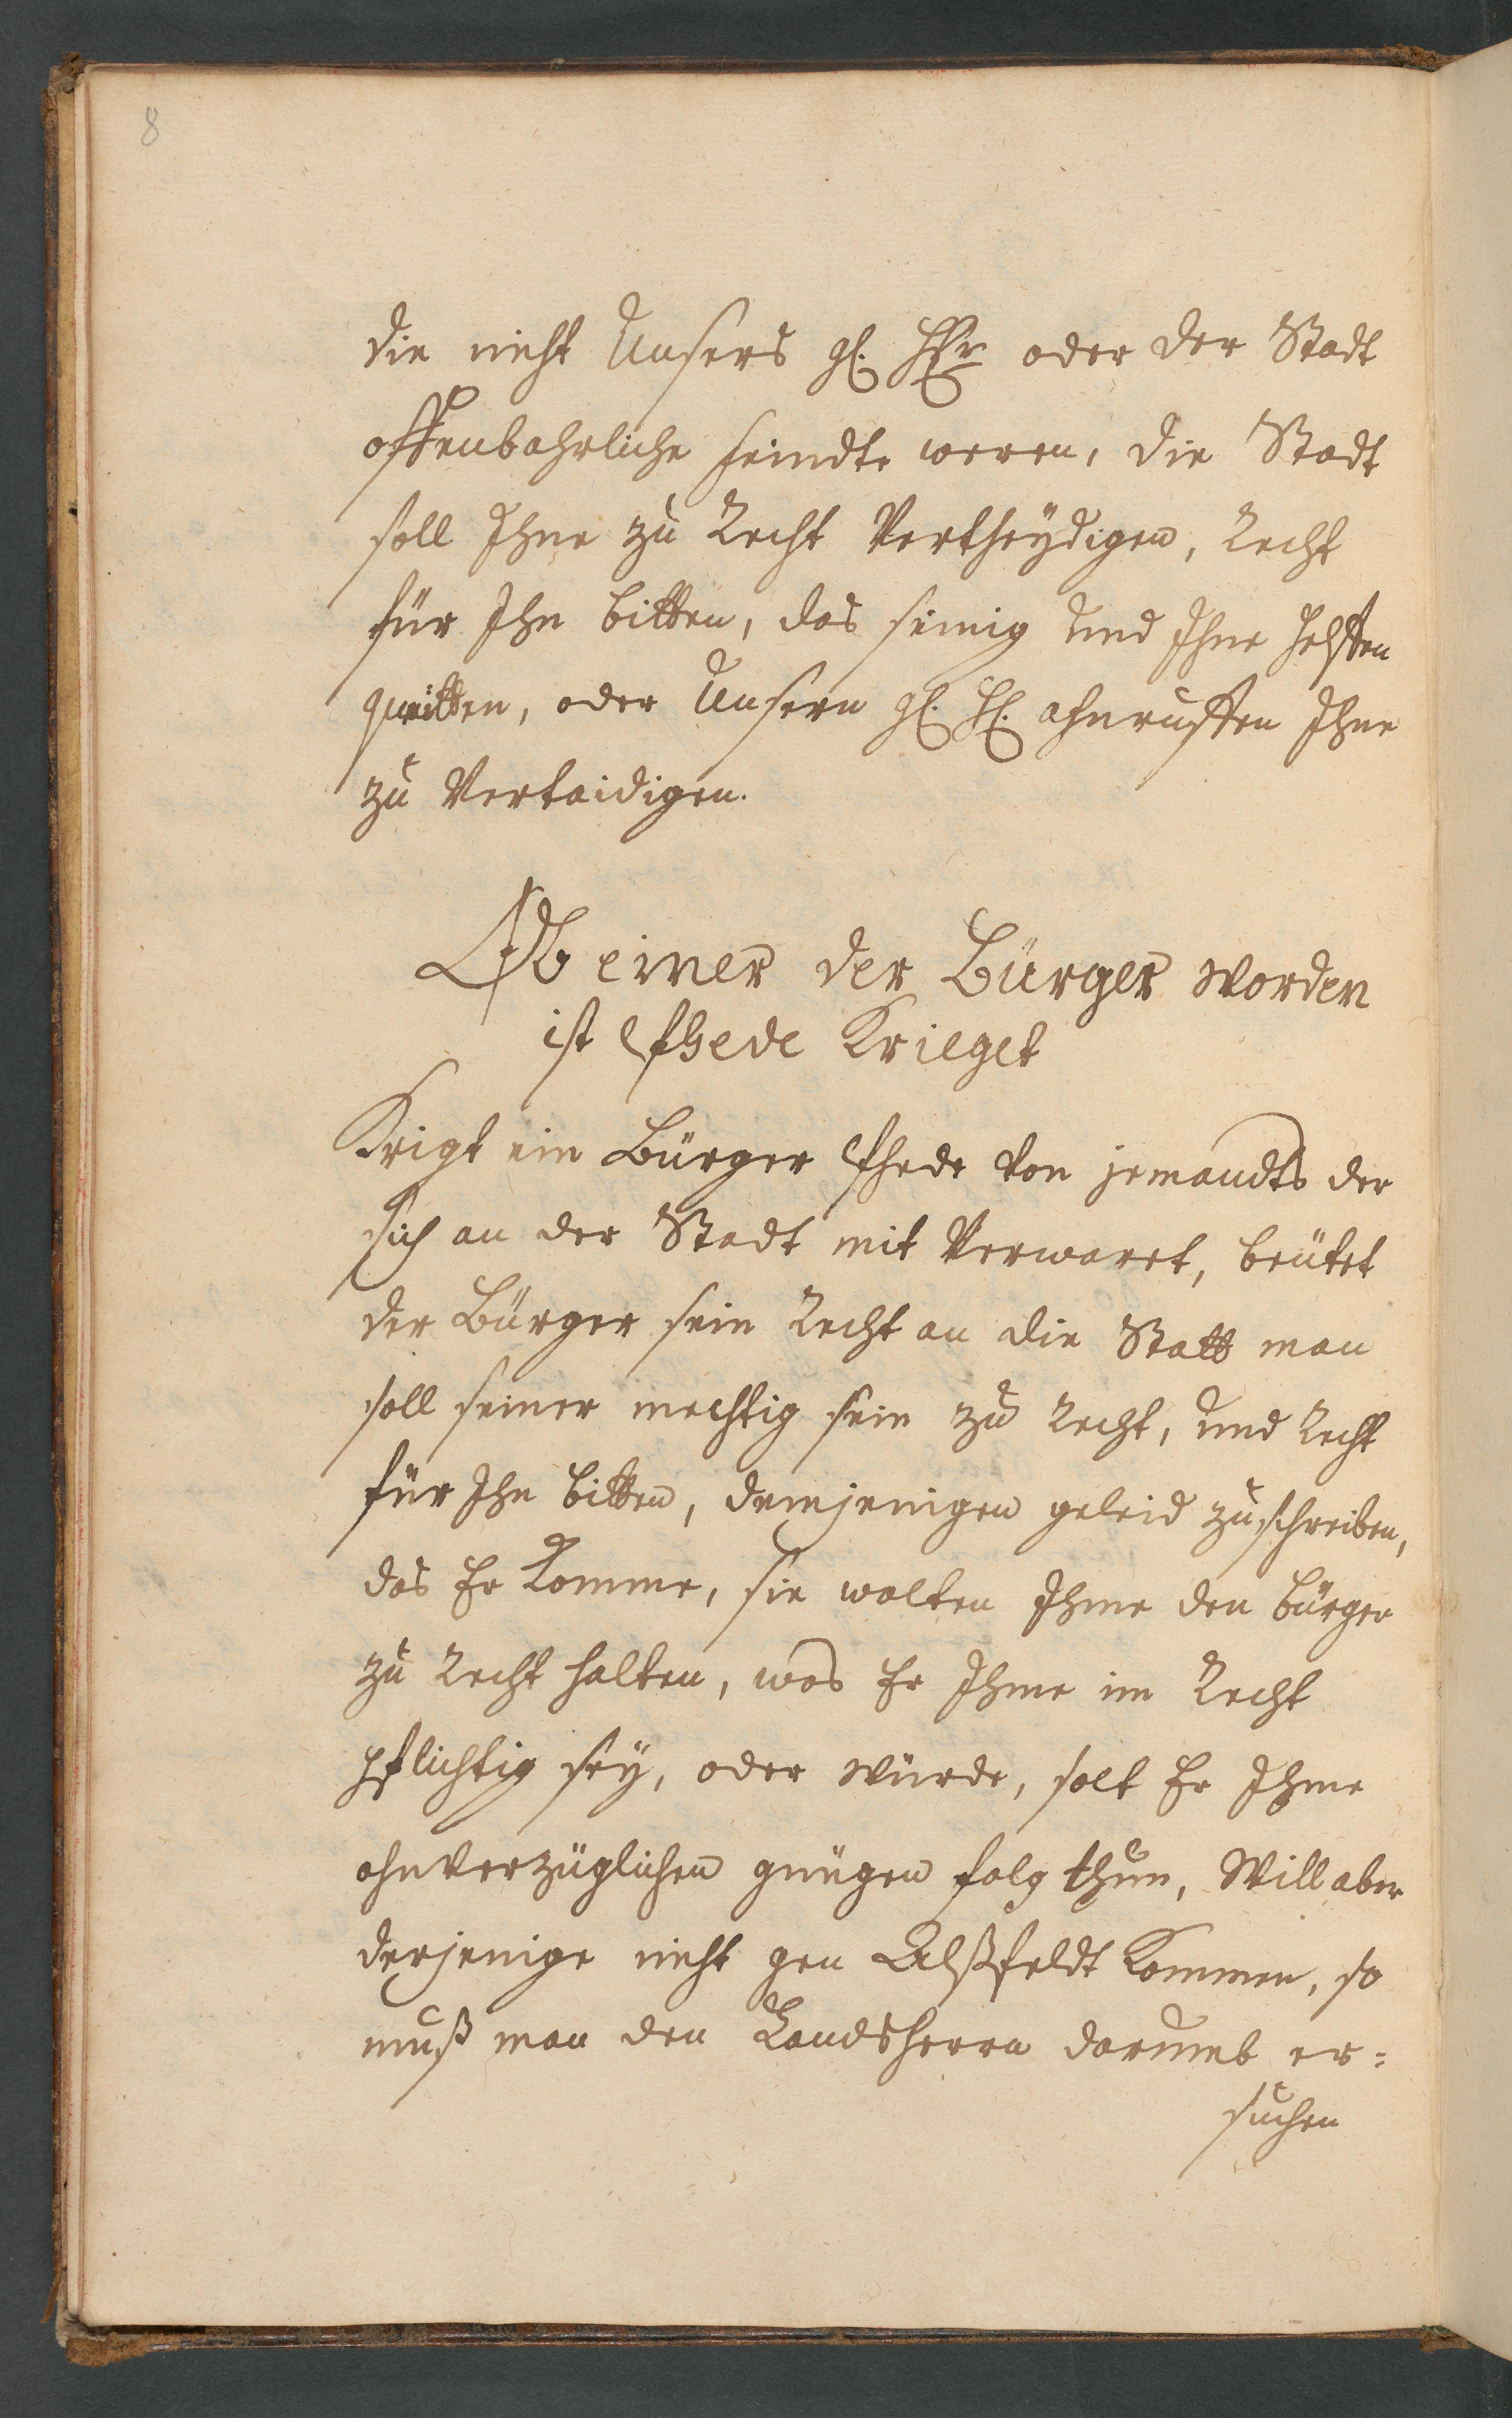 8
die nicht Unsers gl. Hhr oder der Stadt
offenbahrliche feindte weren, die Stadt
soll Ihne zu Recht Vertheydigen, Recht
für Ihn bitten, das seinig und Ihne helffen
queitten, oder Unsern gl. Hl. ahnruffen Ihne
zu Vertaidigen.
Ob einer der Bürger worden
ist Pfhede Krieget
Krigt ein Bürger Pfhede von jemandts der
sich an der Stadt mit Verwaret, beütet
der Bürger sein Recht an die Statt man
soll seiner mechtig sein zu Recht, und Recht
für Ihn bitten, demjenigen geleid zuschreiben,
das Er Komme, sie wolten Ihme den bürger
zu Recht halten, was Er Ihme im Recht
pflichtig sey, oder würde, solt Er Ihme
ohnverzüglichen gnügen folg thun, Will aber
derjenige nicht gen Alßfeldt Kommen, so
muß man den Landsherrn darumb er=
suchen